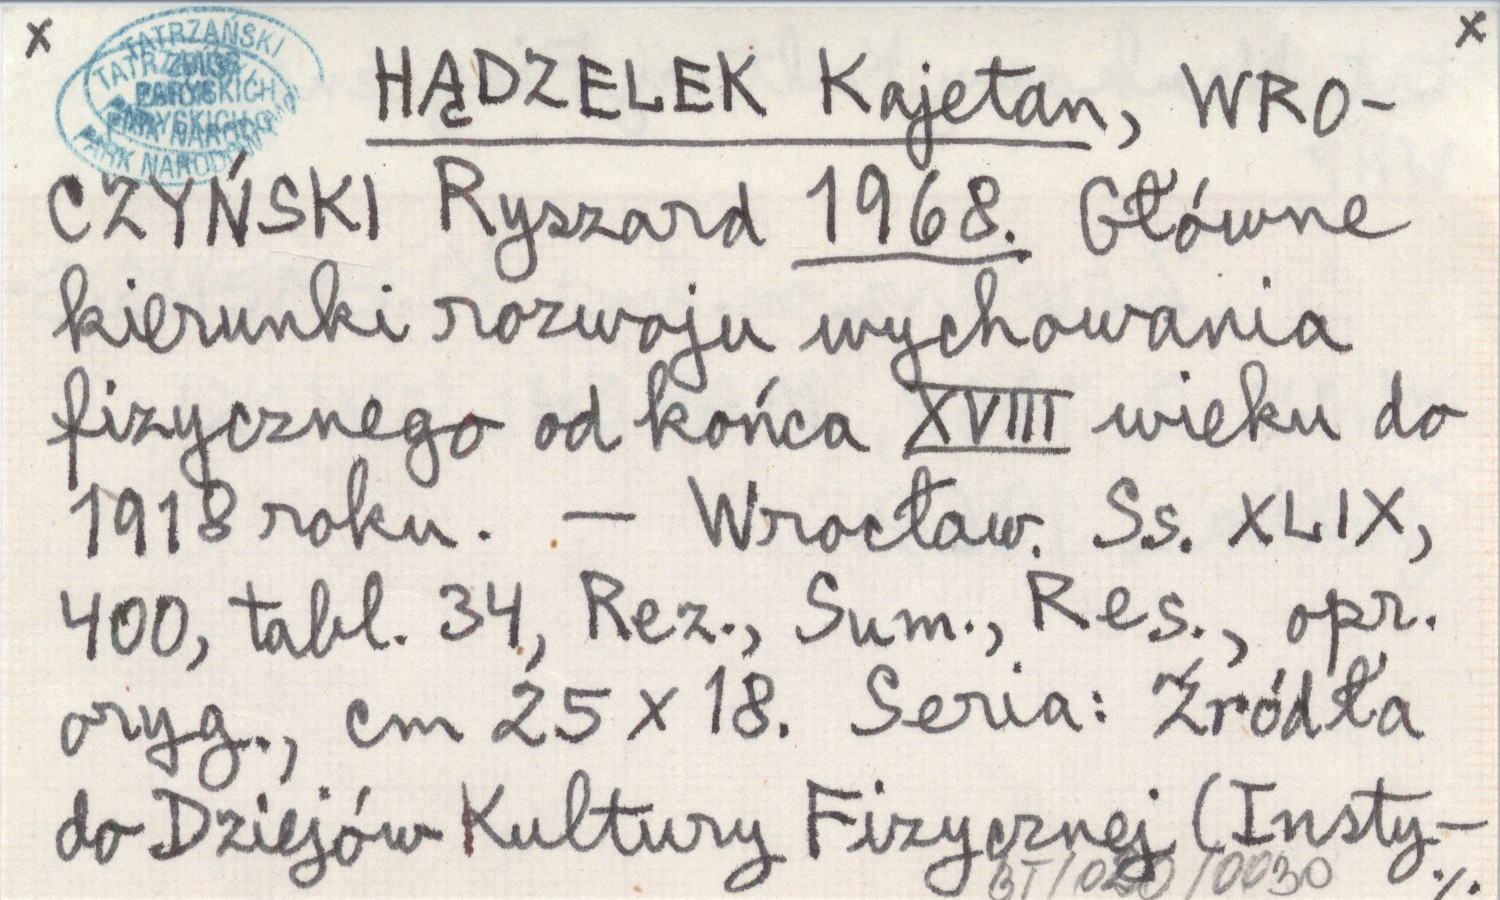 x x
TATRZAŃSKI
PARK NARODOWY
HĄDZELEK Kajetan, WRO-
CZYŃSKI Ryszard 1968. Główne
kierunki rozwoju wychowania
fizycznego od końca XVIII wieku do
1918 roku. — Wrocław. Ss. XLIX,
400, tabl. 34, Rez., Sum., Res., opr.
oryg., cm 25 x 18. Seria: Źródła
do Dziejów Kultury Fizycznej (Insty-
BT/020/0030 ./.